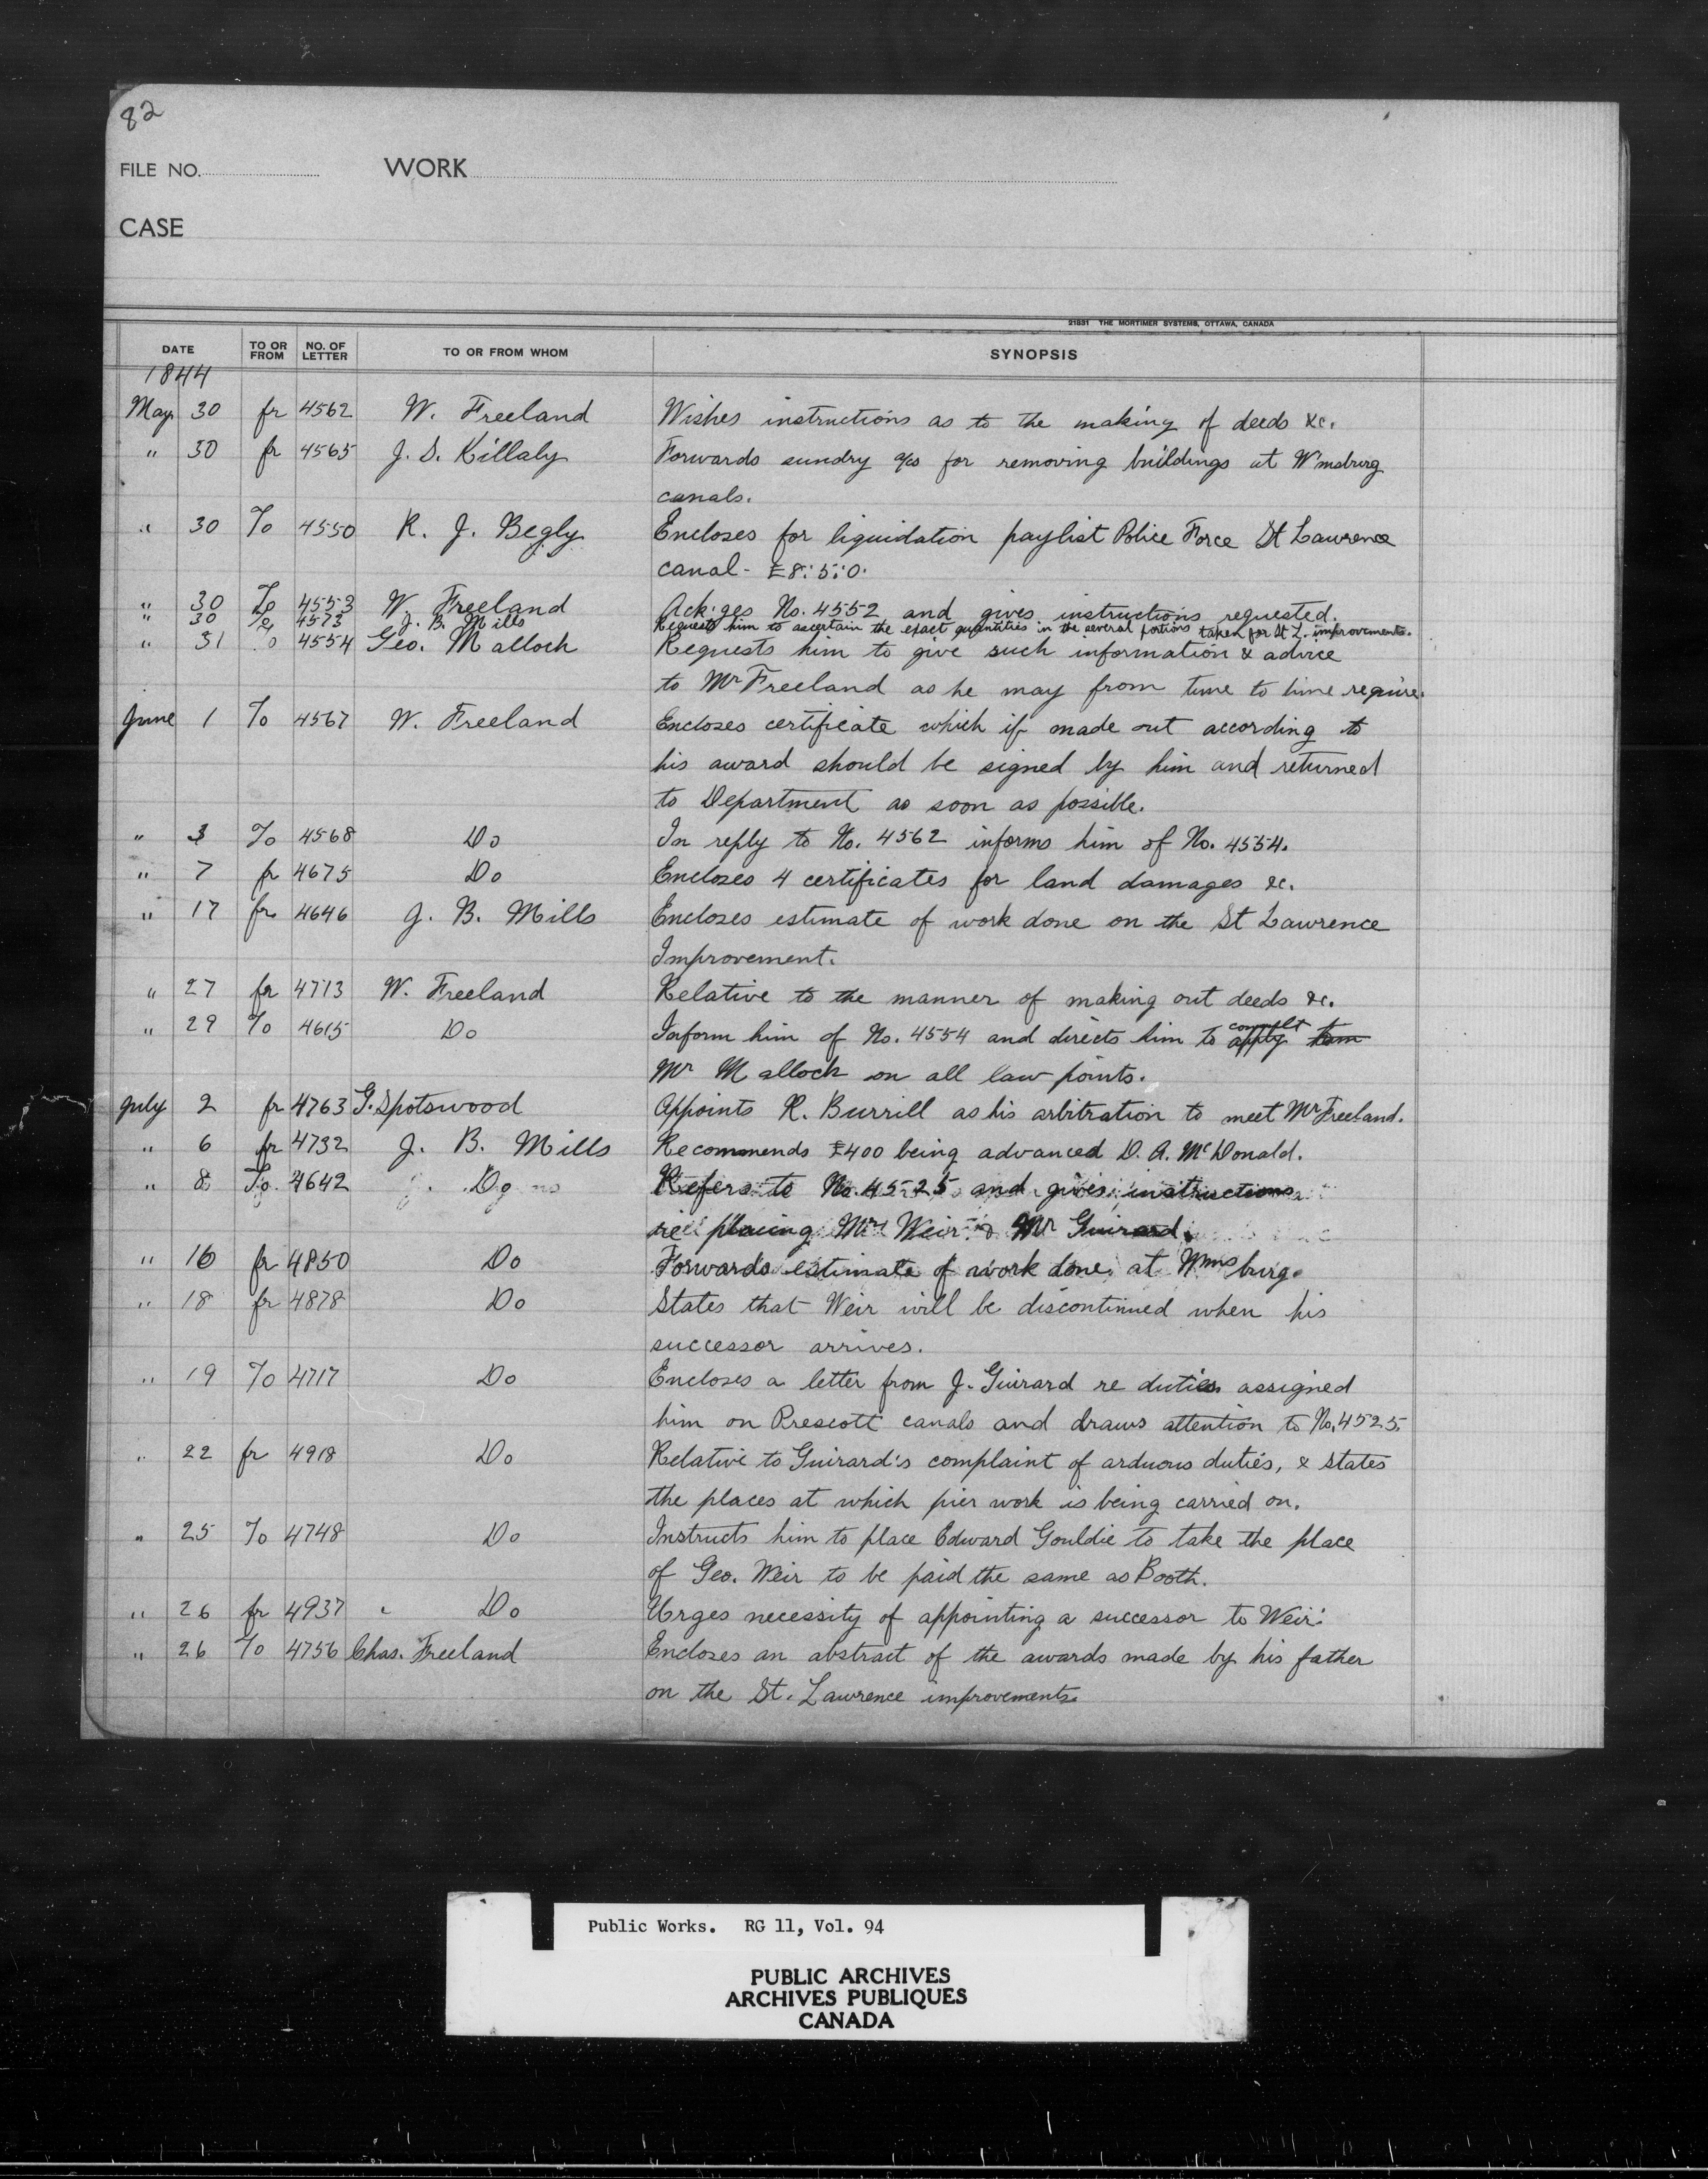 82
FILE NO. WORK
CASE
21831 THE MORTIMER SYSTEMS, OTTAWA, CANADA
DATE TO OR FROM NO. OF LETTER TO OR FROM WHOM SYNOPSIS
1844
May 30 fr 4562 W. Freeland Wishes instructions as to the making of deeds &c.
" 30 fr 4565 J. S. Killaly Forwards sundry a/cs for removing buildings at Wmsburg
canals.
" 30 To 4550 R. J. Begly Encloses for liquidation paylist Police Force St Lawrence
canal - £8:5:0.
" 30 To 4553 W. Freeland Ack:ges No. 4552 and gives instructions requested.
" 30 To 4573 J. B. Mills Requests him to ascertain the exact quantities in the several portions taken for St L. improvements.
" 31 To 4554 Geo. Malloch Requests him to give such information & advice
to Mr Freeland as he may from time to time require.
June 1 To 4567 W. Freeland Encloses certificate which if made out according to
his award should be signed by him and returned
to Department as soon as possible.
" 3 To 4568 Do In reply to No. 4562 informs him of No. 4554.
" 7 fr 4675 Do Encloses 4 certificates for land damages &c.
" 17 fr 4646 J. B. Mills Encloses estimate of work done on the St Lawrence
Improvement.
" 27 fr 4713 W. Freeland Relative to the manner of making out deeds &c.
" 29 To 4615 Do Inform him of No. 4554 and directs him to consult apply to
Mr Malloch on all law points.
July 2 fr 4763 G. Spotswood Appoints R. Burrill as his arbitration to meet Mr Freeland.
" 6 fr 4732 J. B. Mills Recommends £400 being advanced D. A. McDonald.
" 8 To 4642 Do Refers to No. 4525 and gives instructions
re placing Mr Weir & Mr Guirard.
" 16 fr 4850 Do Forwards estimate of work done at Wmsburg.
" 18 fr 4878 Do States that Weir will be discontinued when his
successor arrives.
" 19 To 4717 Do Encloses a letter from J. Guirard re duties assigned
him on Prescott canals and draws attention to No. 4525.
" 22 fr 4918 Do Relative to Guirard's complaint of arduous duties, & states
the places at which pier work is being carried on.
" 25 To 4748 Do Instructs him to place Edward Gouldie to take the place
of Geo. Weir to be paid the same as Booth.
" 26 fr 4937 Do Urges necessity of appointing a successor to Weir.
" 26 To 4756 Chas. Freeland Encloses an abstract of the awards made by his father
on the St. Lawrence improvements.
Public Works. RG 11, Vol. 94
PUBLIC ARCHIVES
ARCHIVES PUBLIQUES
CANADA